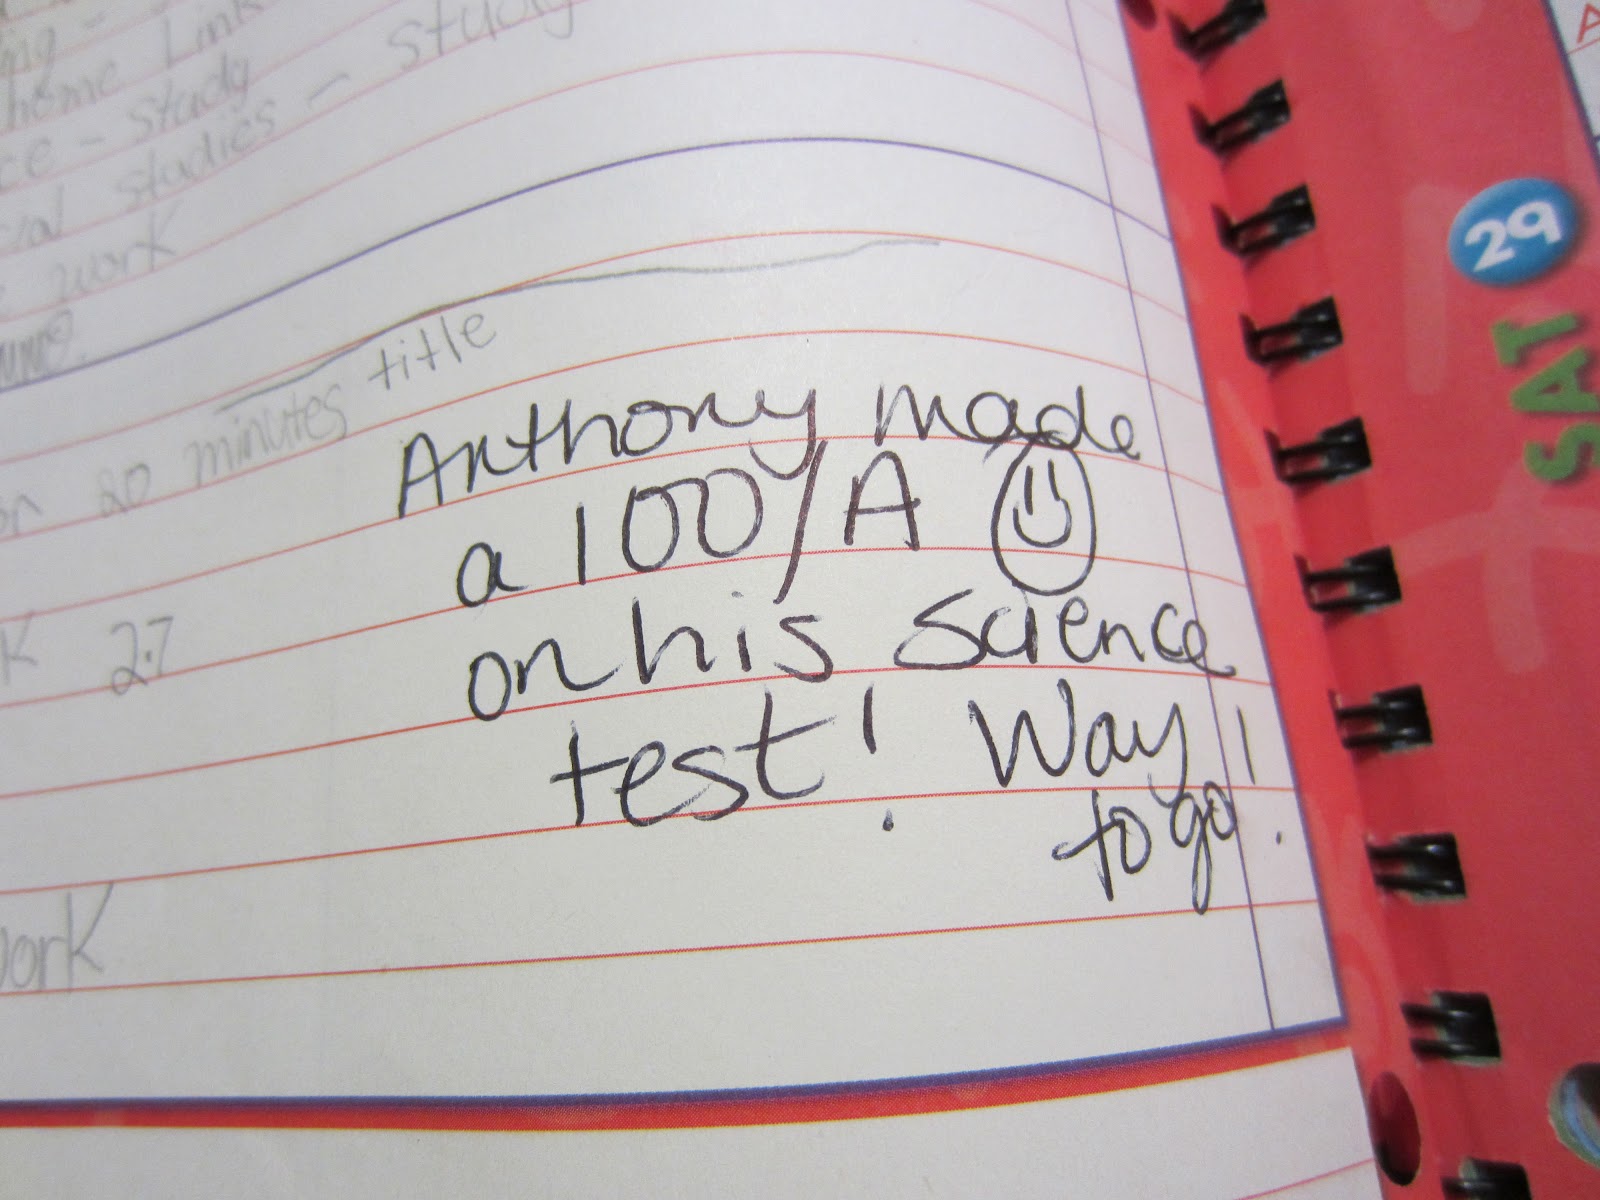 home Link
study
studies - study
work
20 minutes title
Anthony made
a 100/A
on his science
test! Way
to go!
2.7
work
29
SAT